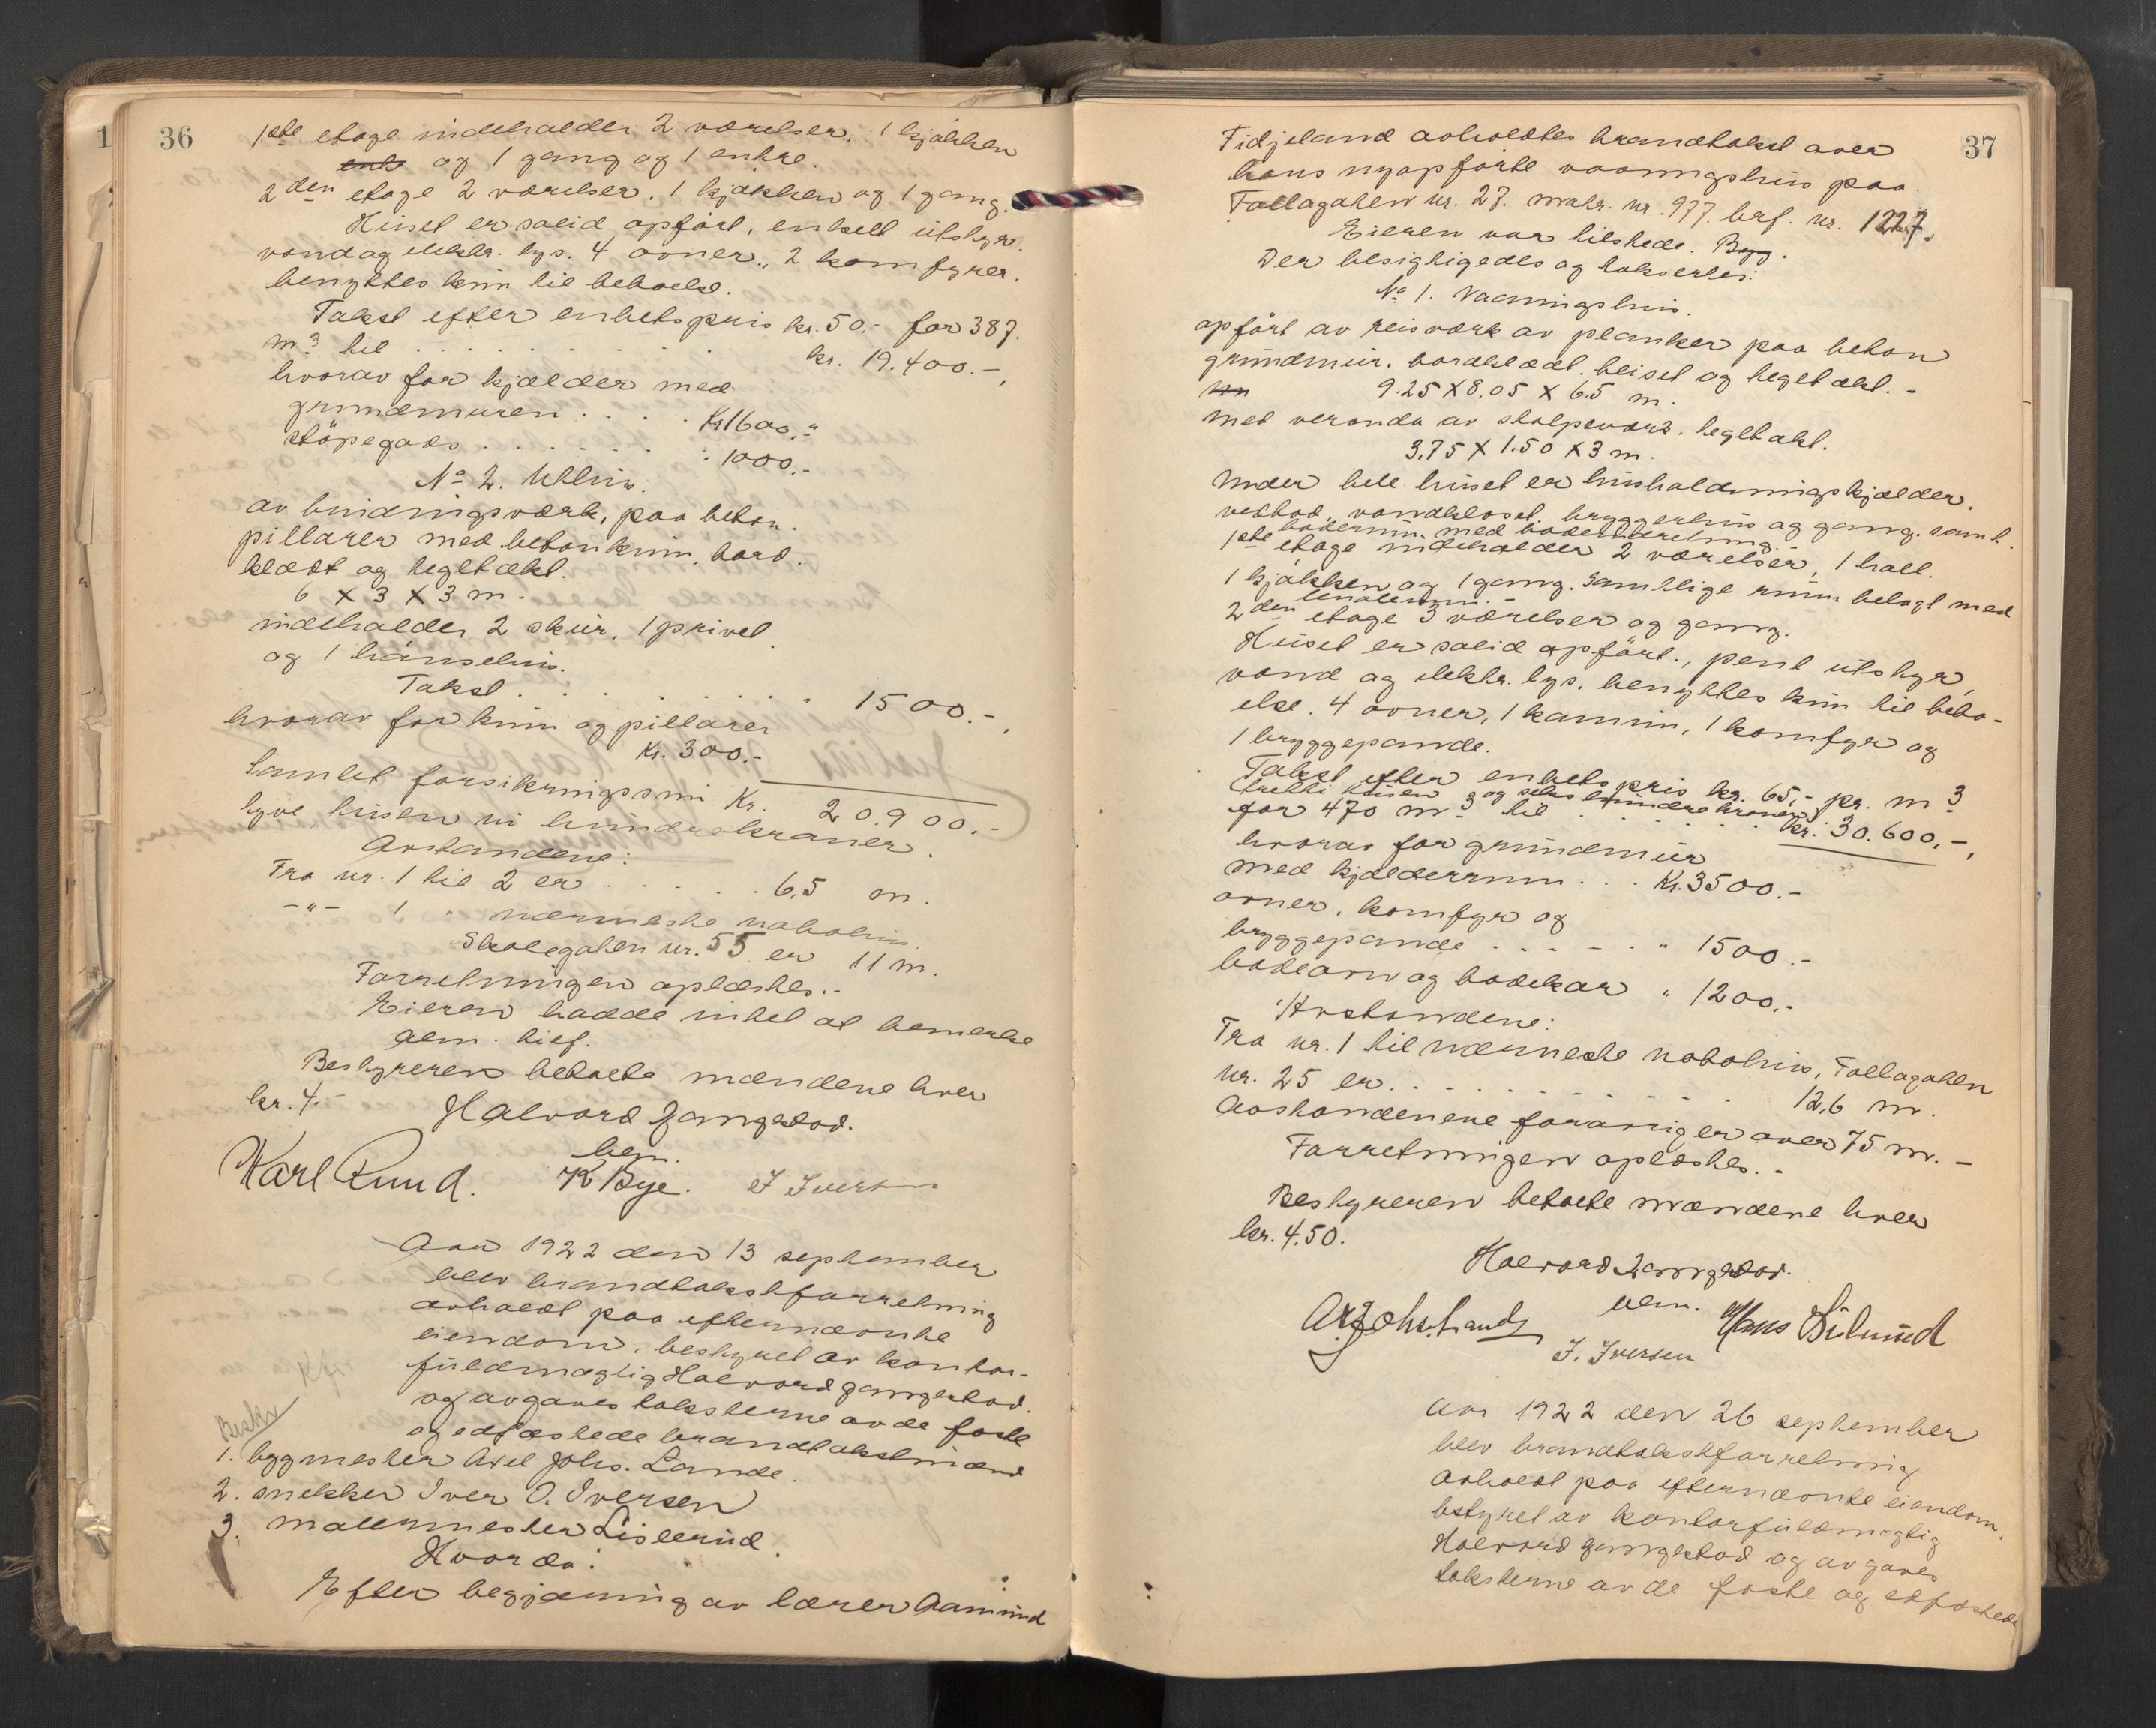 36
1ste etage indeholder 2 værelser, 1 kjøkken
ents og 1 gang og 1 entre.
2den etage 2 værelser, 1 kjøkken og 1 gang.
Huset er solid opført, enkelt utstyr.
vand og elektr. lys. 4 ovner, 2 komfyrer.
benyttes kun til beboelse.
Takst efter enhetspris kr. 50.- for 387.
m3 til . . . . . . kr. 19.400.-,
hvorav for kjælder med
grundmuren . . . . Kr 1600.-
støpegods . . . . . . " 1000.-
No 2. Uthus.
av bindingsværk, paa beton.
pillarer med betonkum, bord.
klædt og tegltækt.
6 X 3 X 3 m.
indeholder 2 skur, 1 privet
og 1 hønsehus.
Takst . . . . . . . . 1500.-,
hvorav for kum og pillarer
Kr. 300.-
Samlet forsikringssum Kr. 20.900.-
tyve tusen ni hundrekroner.
Avstandene:
Fra nr. 1 til 2 er . . . . . 6,5 m.
-"- 1 " nærmeste nabohus.
Skolegaten nr. 55 er 11 m.
Forretningen oplæstes.-
Eieren hadde intet at bemerke
Bestyreren betalte mændene hver
kr. 4.- Halvord Jangestad.
Karl Ruud. K Bye. I Iversen
Aar 1922 den 13 september
blev brandtakstforretning
avholdt paa efternævnte
eiendom, bestyret av kontor-
fuldmægtig Halvord Jangestad.
og avgaves taksterne av de faste
og edfæstede brandtakstmænd
1. bygmester Axel Johs. Lande.
2. snekker Iver O. Iversen
3. malermester Lislerud.
Hvorda:
Efter begjæring av lærer Aamund
37
Fidjeland avholdtes brandtakst over
hans nyopførte vaaningshus paa
Tollagaten nr. 27. matr. nr. 977. brf. nr. 1227.
Eieren var tilstede. Byg.
Der besigtigedes og taksertes:
No 1. Vaaningshus.
opført av reisværk av planker paa beton
grundmur, bordklædt, beiset og tegltækt.-
9.25 X 8.05 X 6.5 m.
med veranda av stolpeværk, tegltækt.
3.75 X 1.50 X 3 m.
Under hele huset er husholdningskjælder.
vedbod, vandkloset, bryggerhus og gang. samt.
baderum med badeindretning.
1ste etage indeholder 2 værelser, 1 hall.
1 kjøkken og 1 gang. Samtlige rum belagt med
linoleum.-
2den etage 3 værelser og gang.
Huset er solid opført., pent utstyr,
vand og elektr. lys. benyttes kun til bebo-
else. 4 ovner, 1 kamin, 1 komfyr og
1 bryggepande.
Takst efter enhetspris kr. 65,- pr. m3
tretti tusen og seks hundre kroner
for 470 m3 til . . . . . . Kr. 30.600,-,
hvorav for grundmur
med kjælderrum . . . Kr. 3500.-
ovner, komfyr og
bryggepande . . . . . " 1500.-
badeovn og badekar " 1200.-
Avstandene:
Fra nr. 1 til nærmeste nabohus, Tollagaten
nr. 25 er . . . . . . . . . 12,6 m.
Avstandenene forøvrig er over 75 m.-
Forretningen oplæstes.-
Bestyreren betalte mændene hver
kr. 4.50.
Halvord Jangestad.
I. Iversen
Aar 1922 den 26 september
blev brandtakstforretning
avholdt paa efternævnte eiendom.
bstyret av kontorfuldmægtig
Halvord Jangestad og avgaves
taksterne av de faste og edfæstede